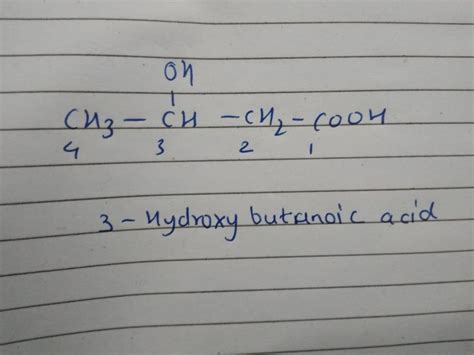 OH
CH3 - CH - CH2 - COOH
4 3 2 1
3 - Hydroxy butanoic acid